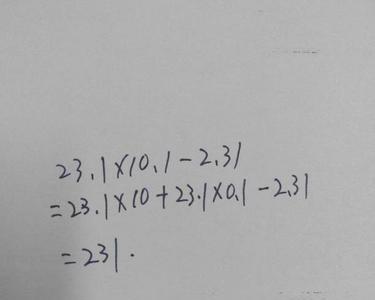 23.1×10.1-2.31
=23.1×10+23.1×0.1-2.31
=231.